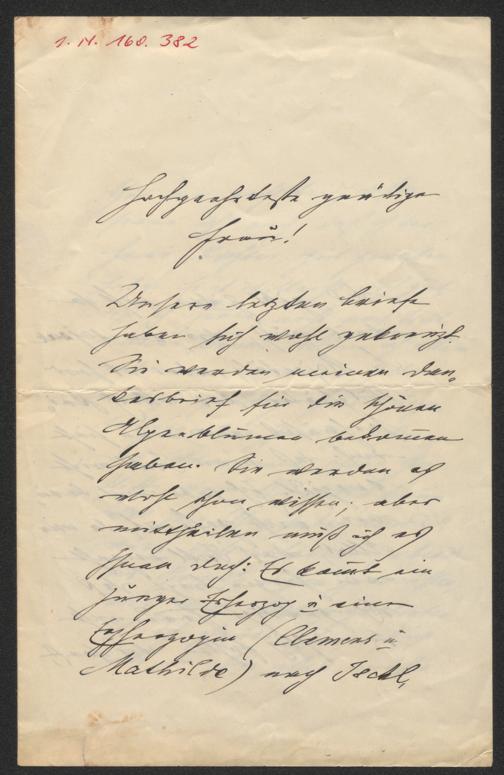 I. N. 168.382
Hochgeehrteste gnädige
Frau!
Unsere letzten Briefe
haben sich wohl gekreuzt.
Sie werden meinen Dan-
kesbrief für die schönen
Alpenblumen bekom̅en
haben. Sie werden es
wohl schon wissen; aber
mittheilen muß ich es
Ihnen doch: Er kom̅t ein
junger Erzherzog u̅ eine
Erzherzogin (Clemens u̅
Mathilde) nach Ischl,